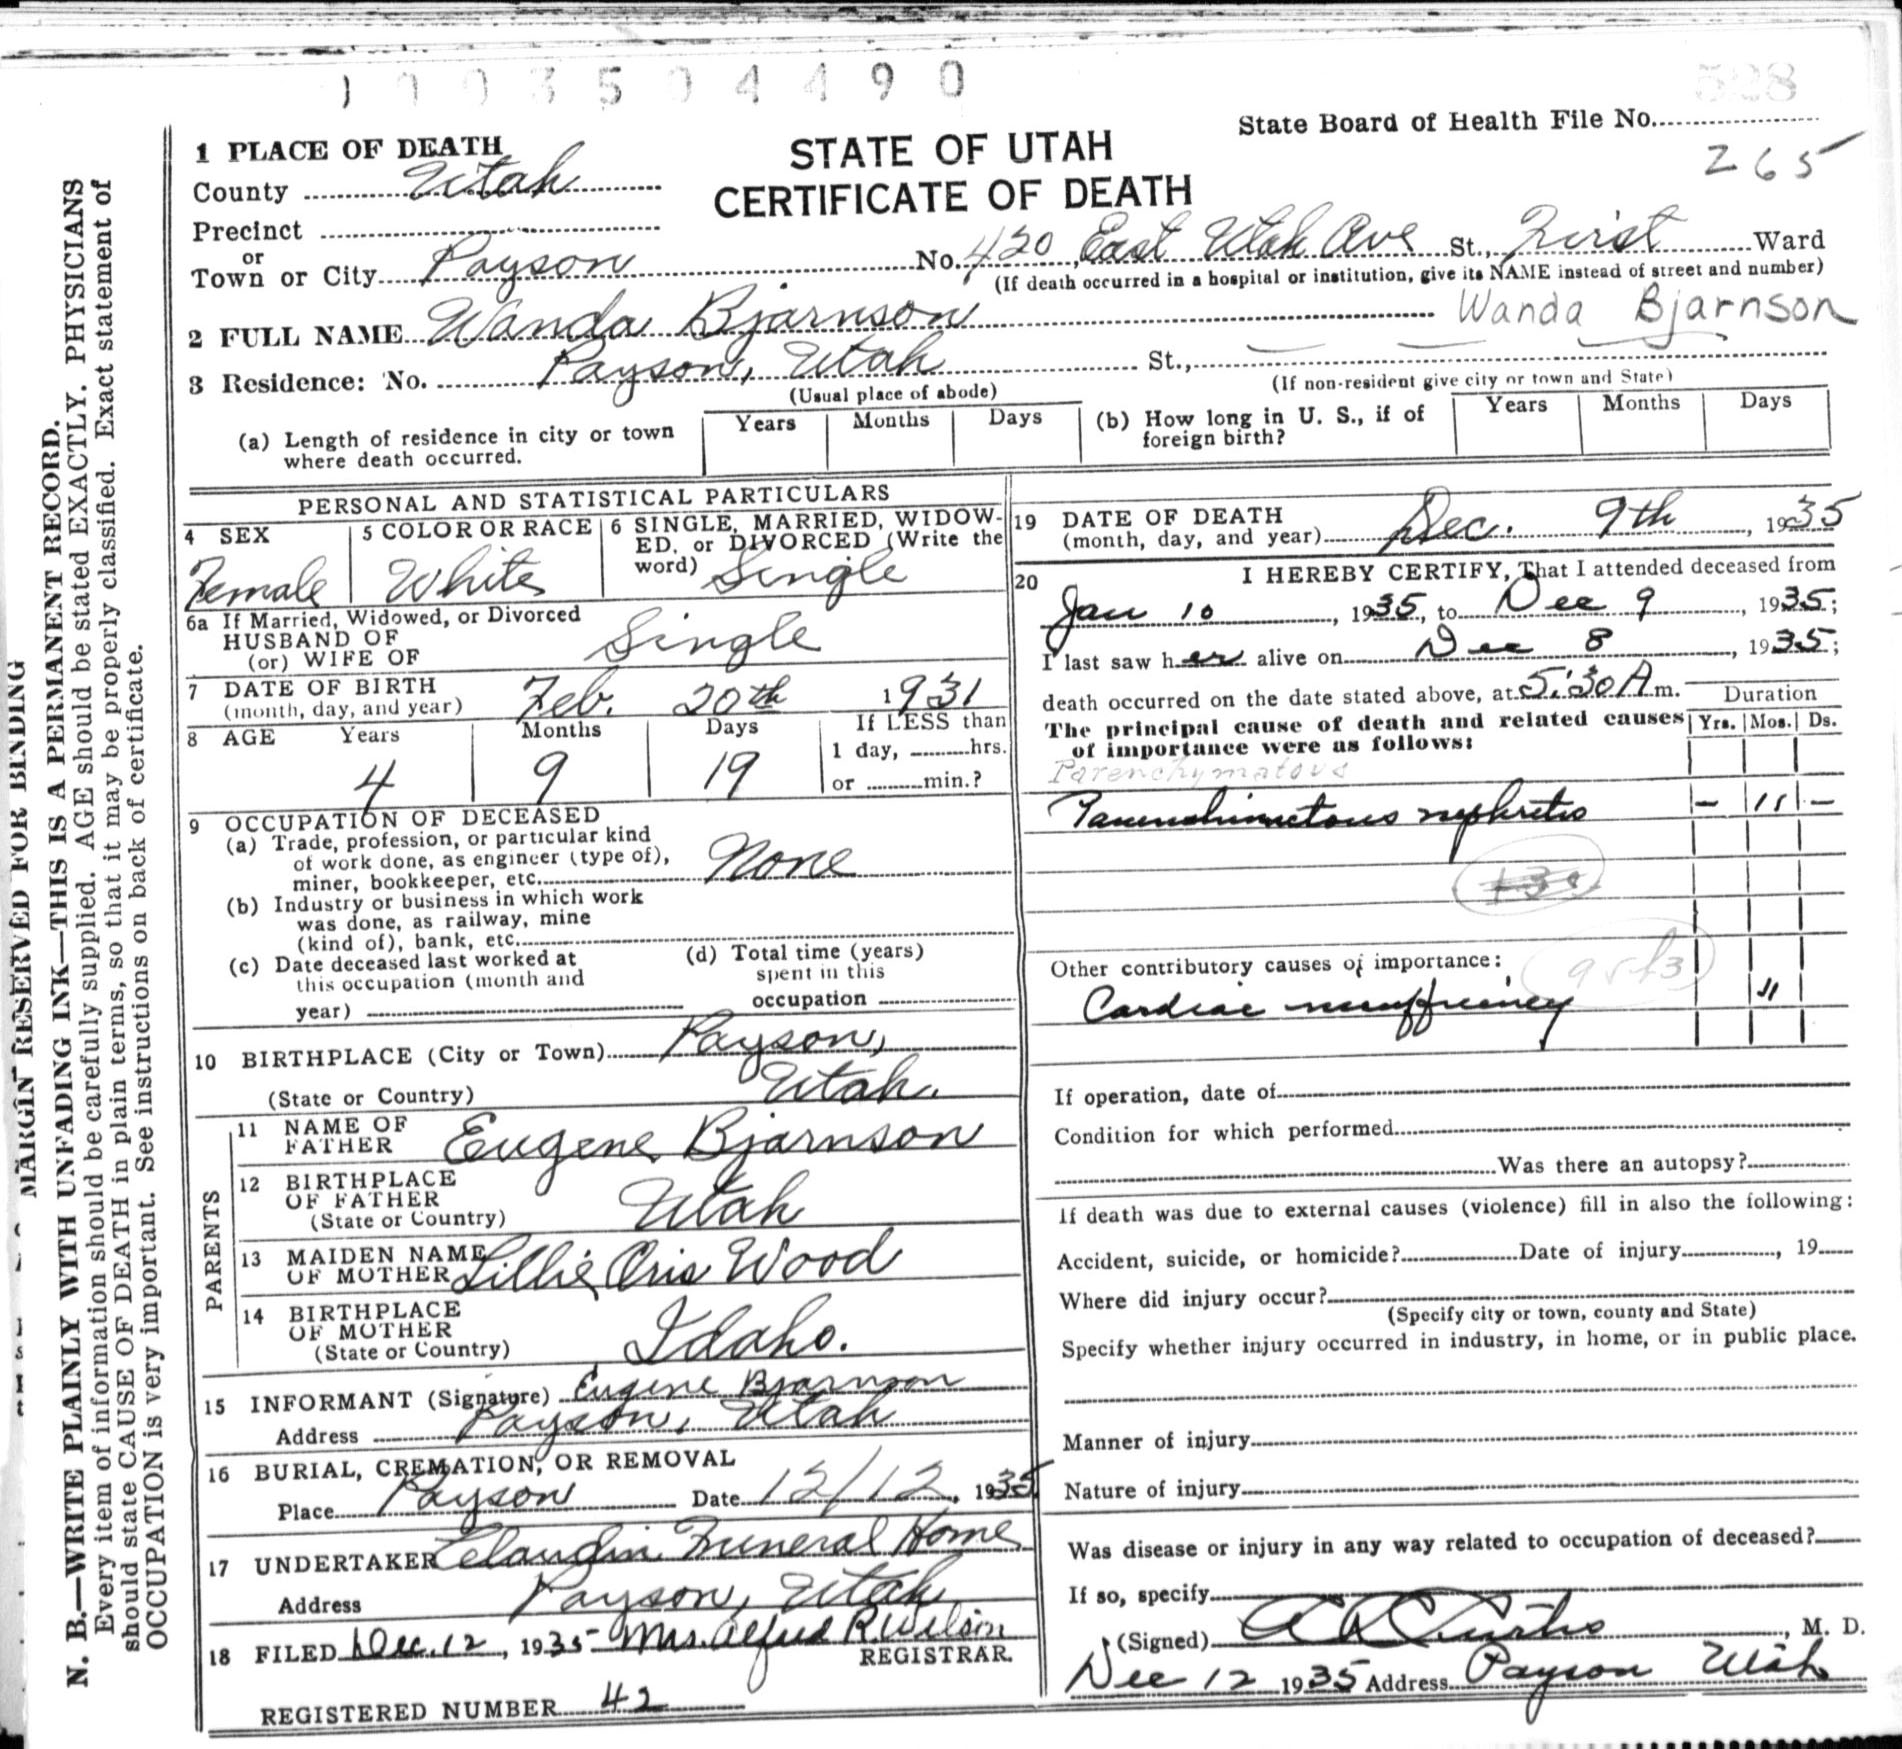 1003504490
528
State Board of Health File No.
265
STATE OF UTAH
CERTIFICATE OF DEATH
1 PLACE OF DEATH
County Utah
Precinct
or
Town or City Payson No. 420 East Utah Ave St., First Ward
(If death occurred in a hospital or institution, give its NAME instead of street and number)
2 FULL NAME Wanda Bjarnson Wanda Bjarnson
3 Residence: No. Payson, Utah St.,
(Usual place of abode) (If non-resident give city or town and State)
(a) Length of residence in city or town where death occurred. Years Months Days
(b) How long in U. S., if of foreign birth? Years Months Days
PERSONAL AND STATISTICAL PARTICULARS
4 SEX Female
5 COLOR OR RACE White
6 SINGLE, MARRIED, WIDOW-
ED, or DIVORCED (Write the
word) Single
6a If Married, Widowed, or Divorced
HUSBAND OF
(or) WIFE OF Single
7 DATE OF BIRTH
(month, day, and year) Feb. 20th 1931
8 AGE Years Months Days If LESS than
4 9 19 1 day, hrs.
or min.?
9 OCCUPATION OF DECEASED
(a) Trade, profession, or particular kind
of work done, as engineer (type of),
miner, bookkeeper, etc. None
(b) Industry or business in which work
was done, as railway, mine
(kind of), bank, etc.
(c) Date deceased last worked at
this occupation (month and
year)
(d) Total time (years)
spent in this
occupation
10 BIRTHPLACE (City or Town) Payson,
(State or Country) Utah.
PARENTS
11 NAME OF
FATHER Eugene Bjarnson
12 BIRTHPLACE
OF FATHER
(State or Country) Utah
13 MAIDEN NAME
OF MOTHER Lillie Oris Wood
14 BIRTHPLACE
OF MOTHER
(State or Country) Idaho.
15 INFORMANT (Signature) Eugene Bjarnson
Address Payson, Utah
16 BURIAL, CREMATION, OR REMOVAL
Place Payson Date 12/12, 1935
17 UNDERTAKER Claudin Funeral Home
Address Payson, Utah
18 FILED Dec. 12, 1935 Mrs. Alfred R. Wilson
REGISTRAR.
REGISTERED NUMBER 42
19 DATE OF DEATH
(month, day, and year) Dec. 9th, 1935
20 I HEREBY CERTIFY, That I attended deceased from
Jan 10, 1935, to Dec 9, 1935;
I last saw her alive on Dec 8, 1935;
death occurred on the date stated above, at 5:30 A m.
Duration
The principal cause of death and related causes
of importance were as follows:
Yrs. Mos. Ds.
Parenchymatous
Parenchimatous nephritis – 11 –
Other contributory causes of importance:
Cardiac insufficiency "
If operation, date of
Condition for which performed
Was there an autopsy?
If death was due to external causes (violence) fill in also the following:
Accident, suicide, or homicide? Date of injury, 19
Where did injury occur?
(Specify city or town, county and State)
Specify whether injury occurred in industry, in home, or in public place.
Manner of injury
Nature of injury
Was disease or injury in any way related to occupation of deceased?
If so, specify
(Signed) A R Curtis, M. D.
Dec 12 1935 Address Payson Utah
MARGIN RESERVED FOR BINDING
N. B.—WRITE PLAINLY WITH UNFADING INK—THIS IS A PERMANENT RECORD.
Every item of information should be carefully supplied. AGE should be stated EXACTLY. PHYSICIANS
should state CAUSE OF DEATH in plain terms, so that it may be properly classified. Exact statement of
OCCUPATION is very important. See instructions on back of certificate.